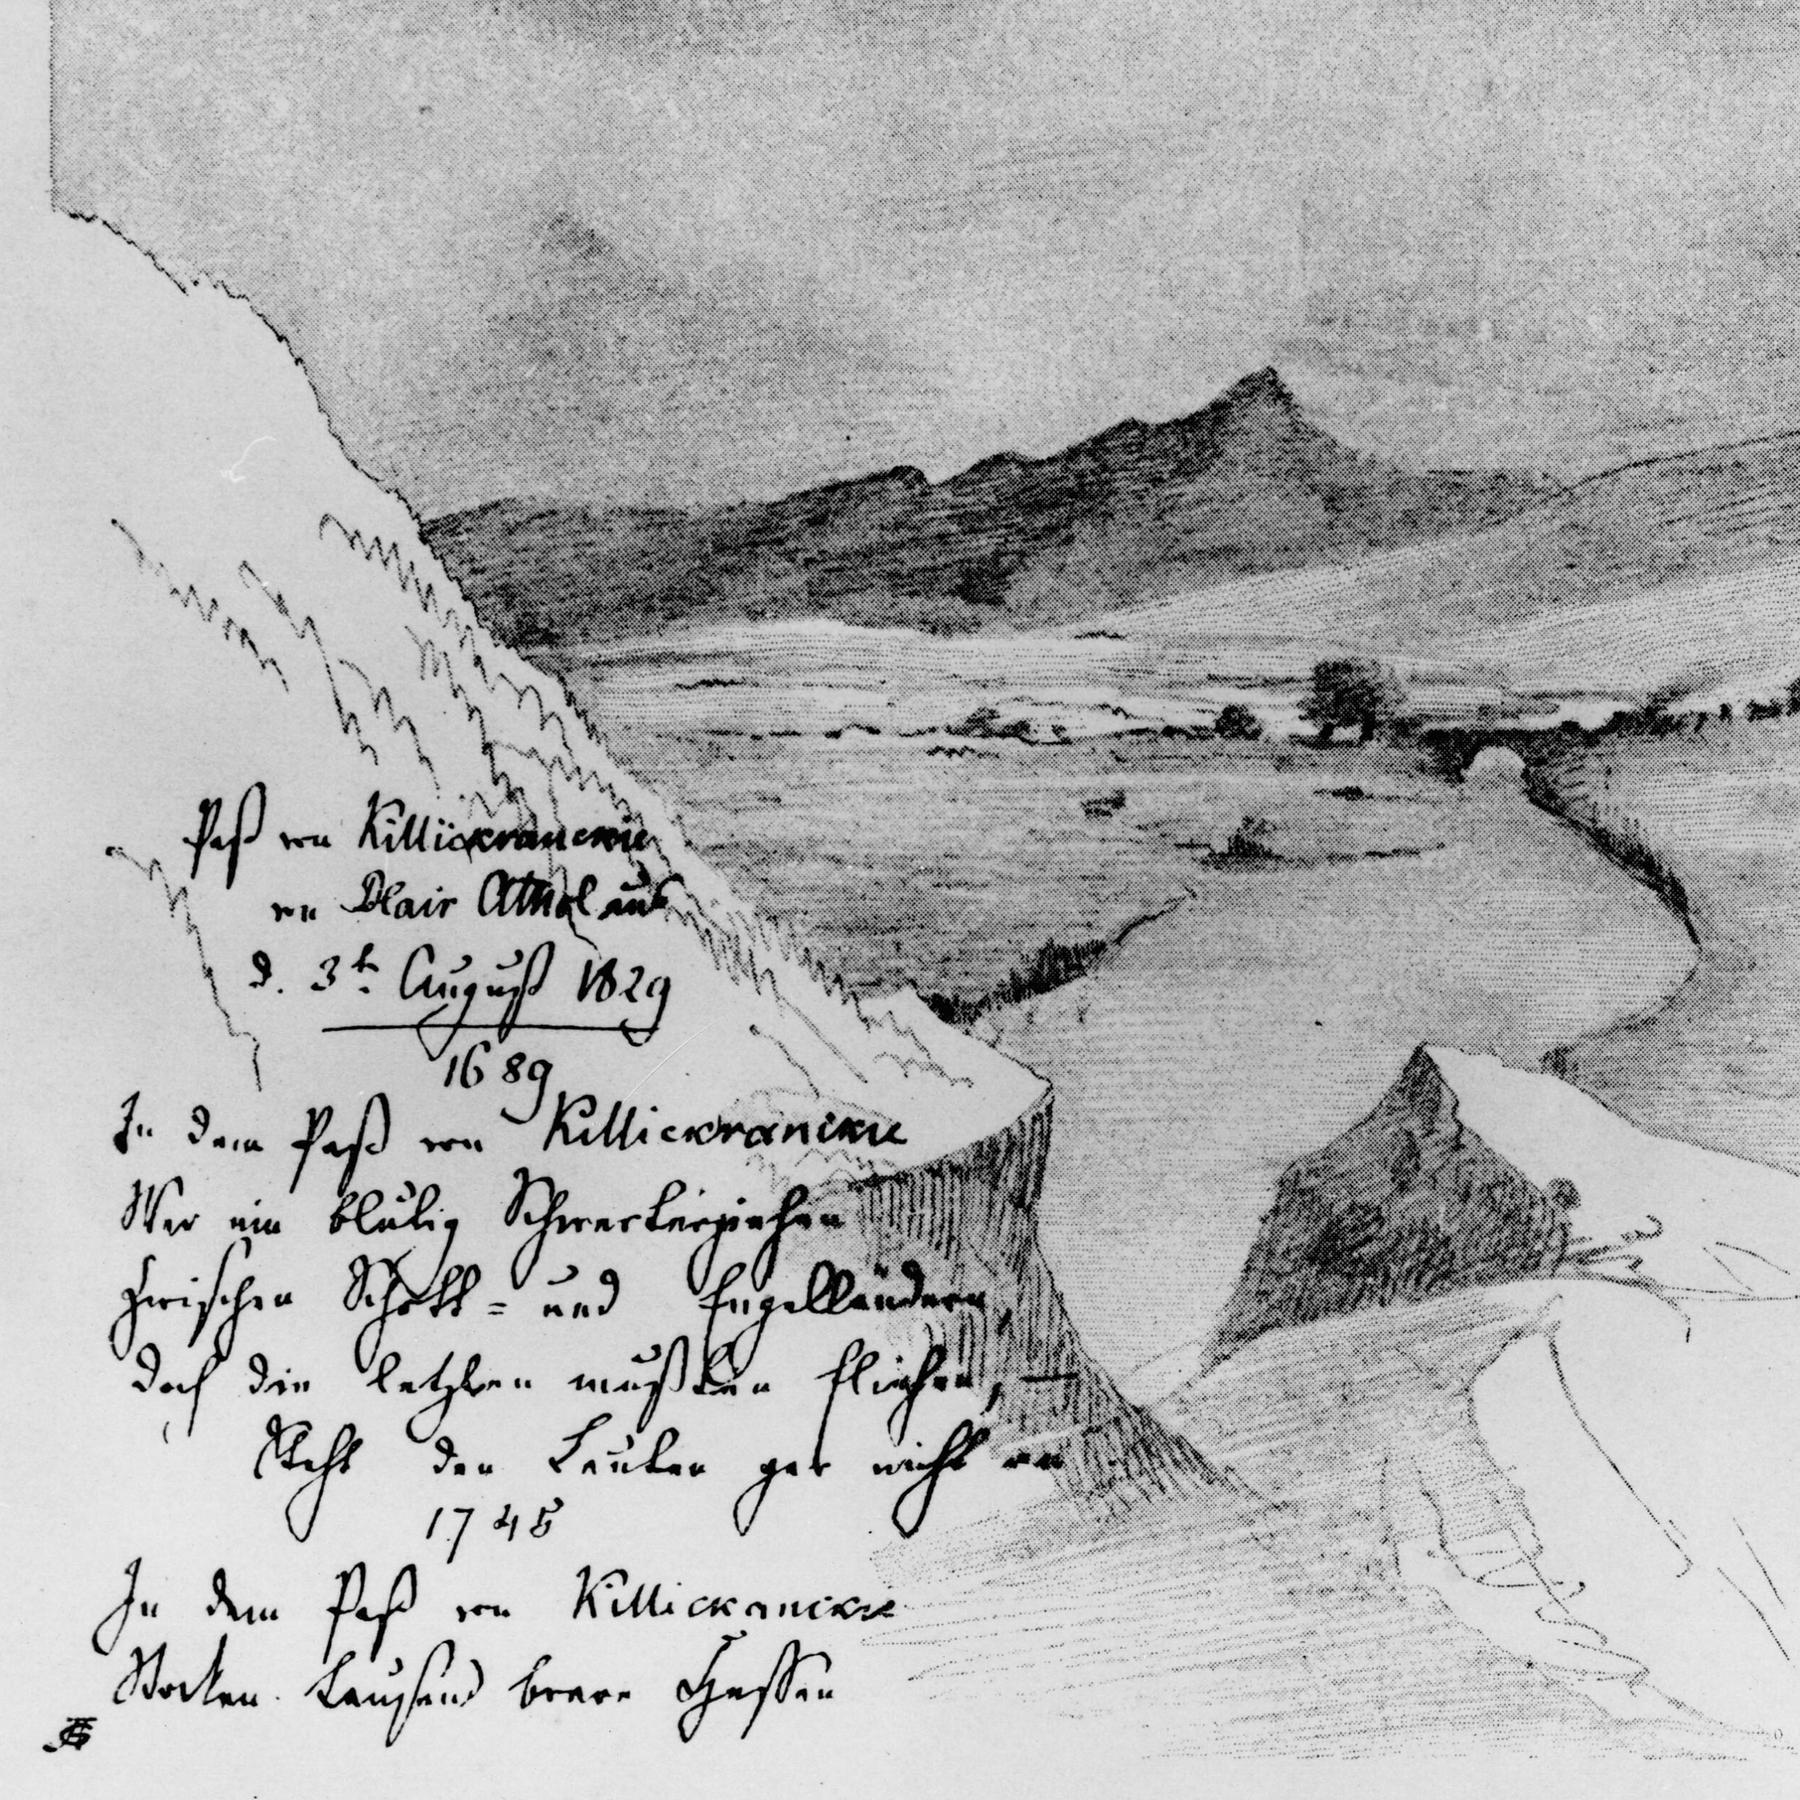 Paß von Killickranckie
von Blair Athol aus
d. 3t. August 1829
1689
In dem Paß von Killickranckie
War ein blutig Schwerterziehen
Zwischen Schott- und Engelländern,
Doch die letzten mußten fliehen, —
Steht den Leuten gar nicht an
1745
In dem Paß von Killickranckie
Stockten tausend brave Hessen